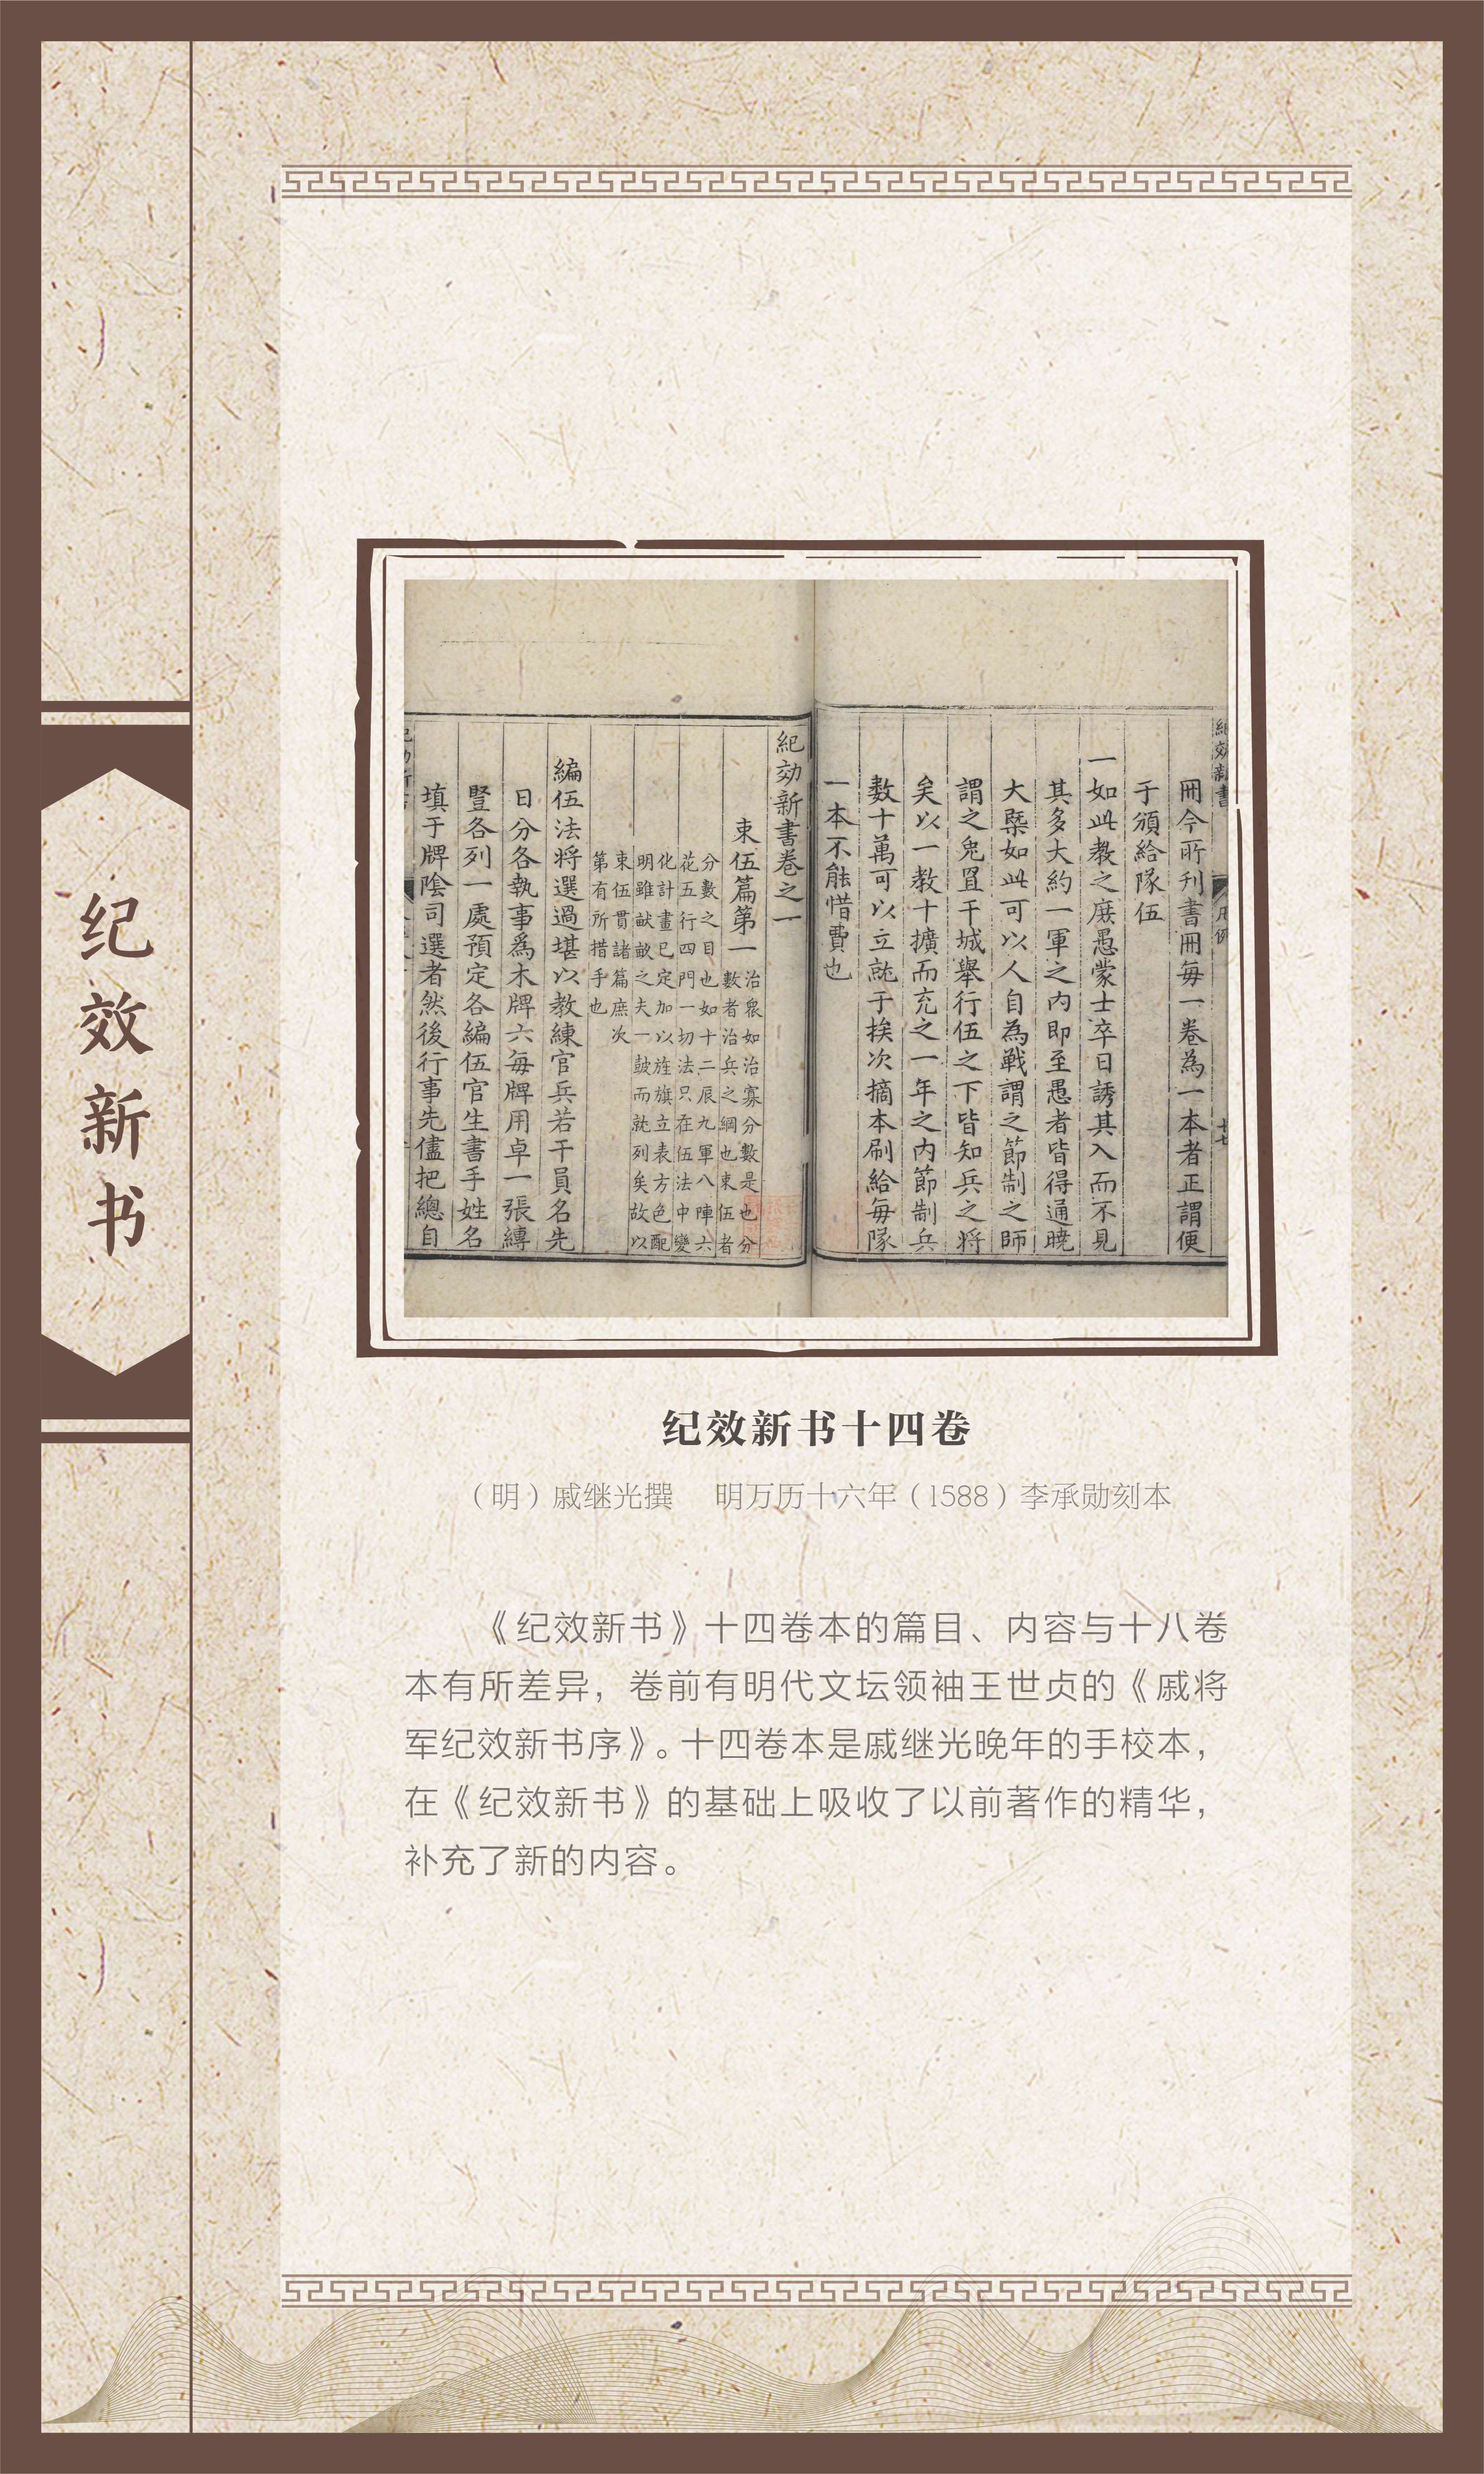 纪效新书
冊今所刋書冊每一卷為一本者正謂便
于頒給隊伍
一如此教之庶愚蒙士卒日誘其入而不見
其多大約一軍之内即至愚者皆得通曉
大槩如此可以人自為戰謂之節制之師
謂之兔罝干城舉行伍之下皆知兵之將
矣以一教十擴而充之一年之内節制兵
数十萬可以立就于挨次摘本刷給每隊
一本不能惜費也
紀効新書卷之一
束伍篇第一
治眾如治寡分數是也分
數者治兵之綱也束伍者
分數之目也如十二辰九軍八陣六
花五行四門一切法只在伍法中變
化計畫已定加以旌旗立表方色配
明雖畎畝之夫一皷而就列矣故以
束伍貫諸篇庶次
第有所措手也
編伍法将選過堪以教練官兵若干員名先
日分各執事爲木牌六每牌用卓一張縳
豎各列一處預定各編伍官生書手姓名
填于牌陰司選者然後行事先儘把總自
纪效新书十四卷
（明）戚继光撰 明万历十六年（1588）李承勋刻本
《纪效新书》十四卷本的篇目、内容与十八卷
本有所差异，卷前有明代文坛领袖王世贞的《戚将
军纪效新书序》。十四卷本是戚继光晚年的手校本，
在《纪效新书》的基础上吸收了以前著作的精华，
补充了新的内容。